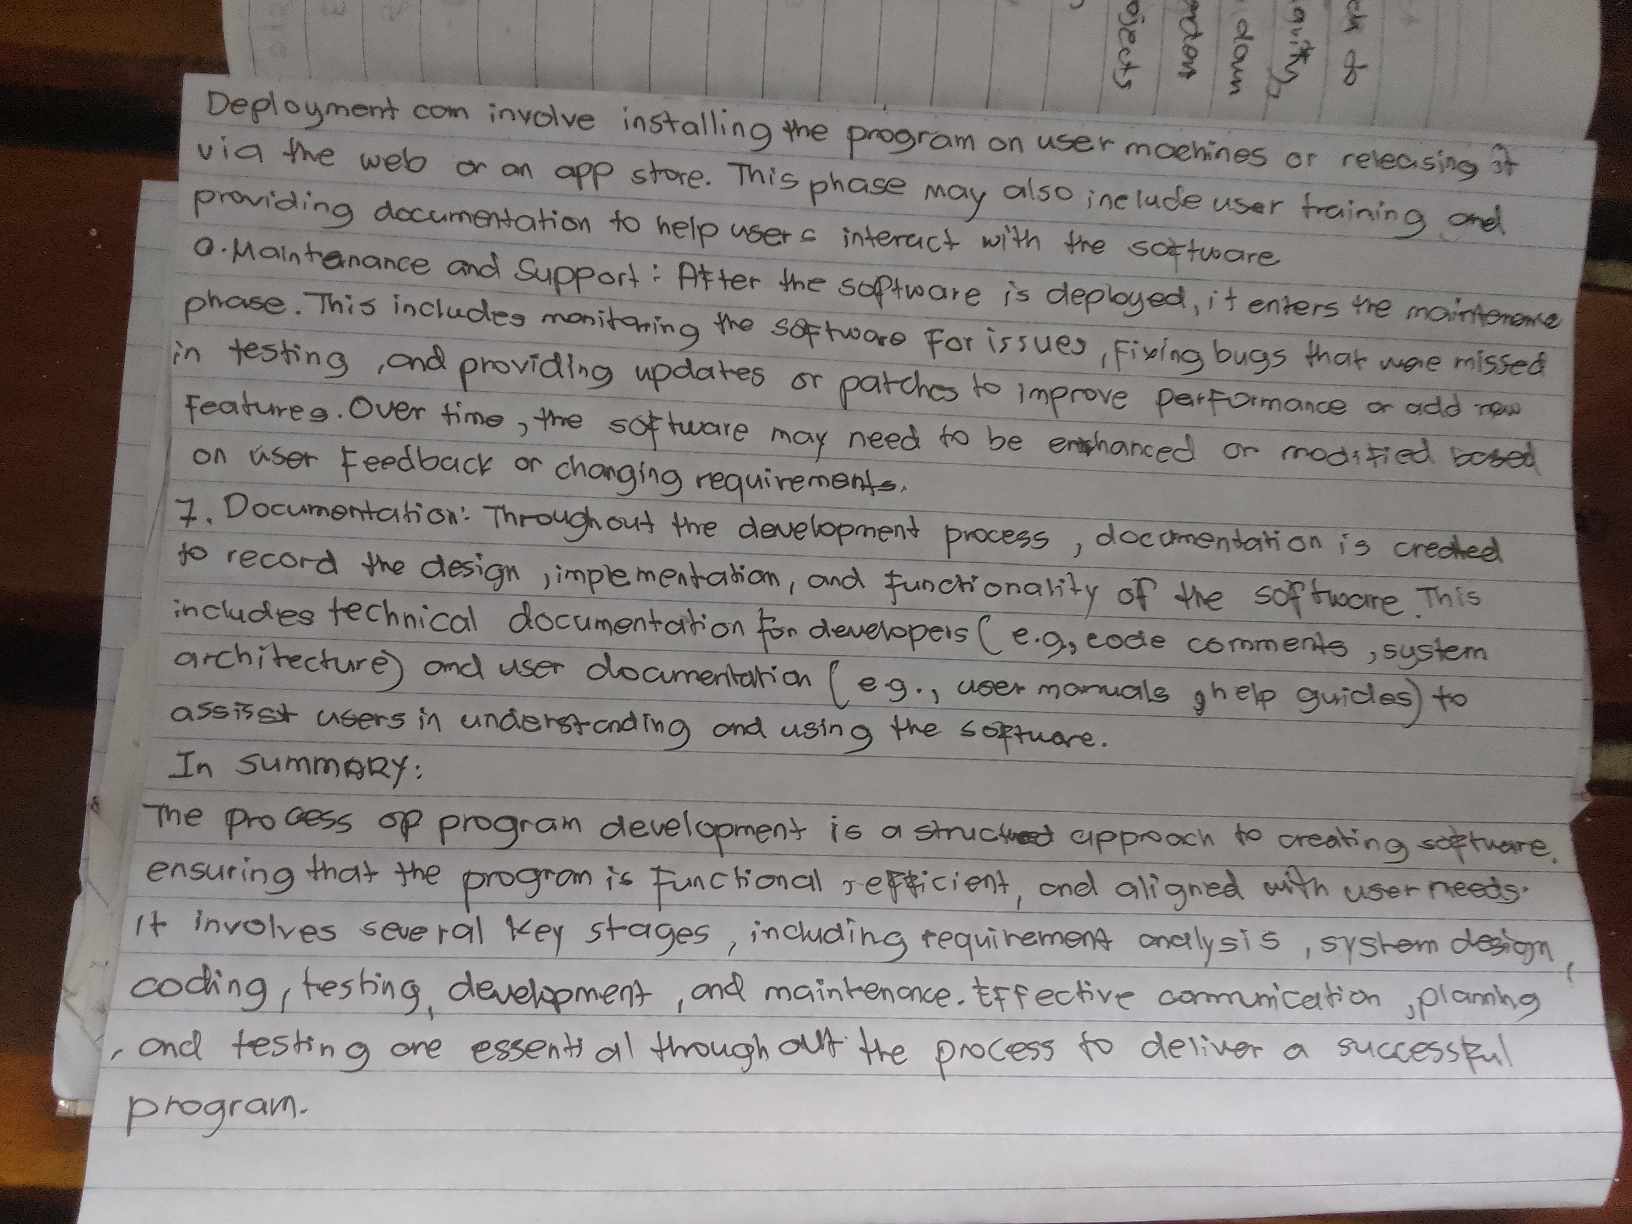 ojects
down
avity,
ch to
Deployment can involve installing the program on user machines or releasing it
via the web or an app store. This phase may also include user training and
providing documentation to help users interact with the software
a. Maintanance and Support: After the software is deployed, it enters the maintenance
phase. This includes monitoring the software for issues, fixing bugs that were missed
in testing, and providing updates or patches to improve performance or add new
features. Over time, the software may need to be enhanced or modified based
on user feedback or changing requirements.
7. Documentation: Throughout the development process, documentation is created
to record the design, implementation, and functionality of the software. This
includes technical documentation for developers (e.g, code comments, system
architecture) and user documentation (e.g., user manuals, help guides) to
assisst users in understanding and using the software.
In SUMMARY:
The process of program development is a structed approach to creating software.
ensuring that the program is functional, efficient, and aligned with user needs.
It involves several key stages, including requirement analysis, system design,
coding, testing, development, and maintenance. Effective communication, planning
, and testing are essential through out the process to deliver a successful
program.